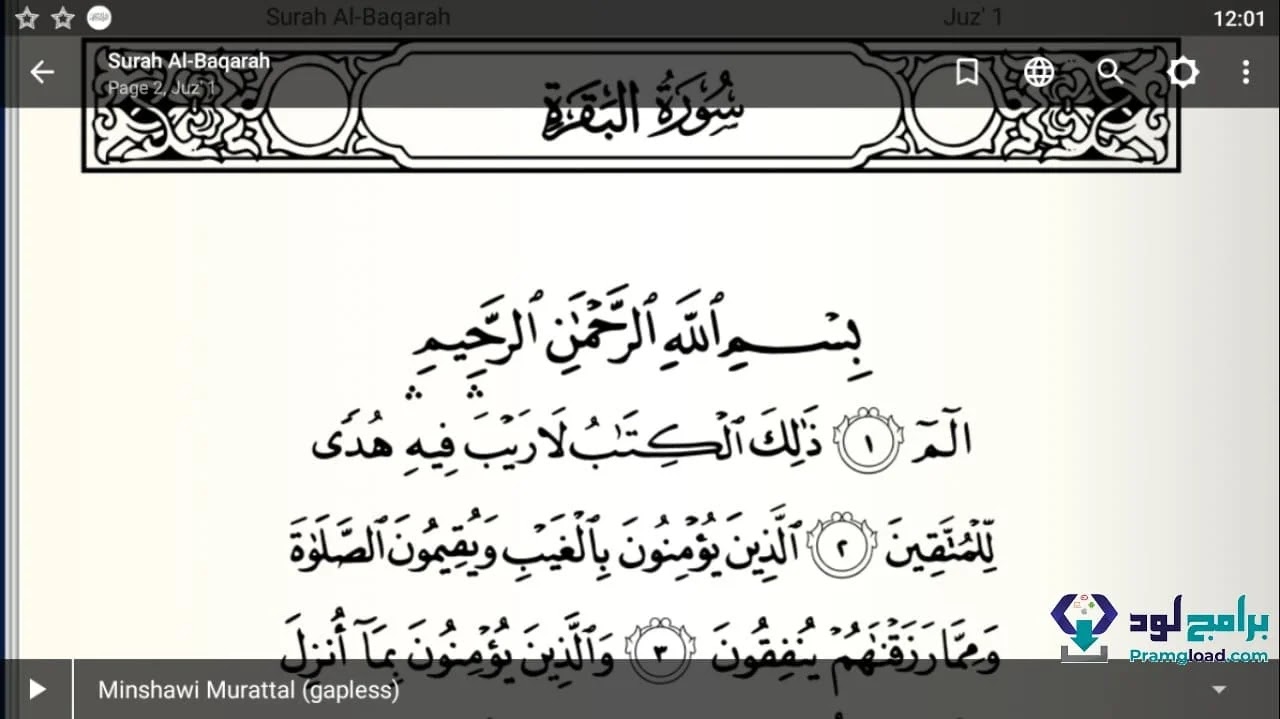 Surah Al-Baqarah Juz' 1 12:01
Surah Al-Baqarah
Page 2, Juz' 1
سُورَةُ البَقَرَةِ
بِسْمِ ٱللَّهِ ٱلرَّحْمَٰنِ ٱلرَّحِيمِ
الٓمٓ ١ ذَٰلِكَ ٱلْكِتَٰبُ لَا رَيْبَ ۛ فِيهِ ۛ هُدًى
لِّلْمُتَّقِينَ ٢ ٱلَّذِينَ يُؤْمِنُونَ بِٱلْغَيْبِ وَيُقِيمُونَ ٱلصَّلَوٰةَ
وَمِمَّا رَزَقْنَٰهُمْ يُنفِقُونَ ٣ وَٱلَّذِينَ يُؤْمِنُونَ بِمَآ أُنزِلَ
برامج لود
Pramgload.com
Minshawi Murattal (gapless)